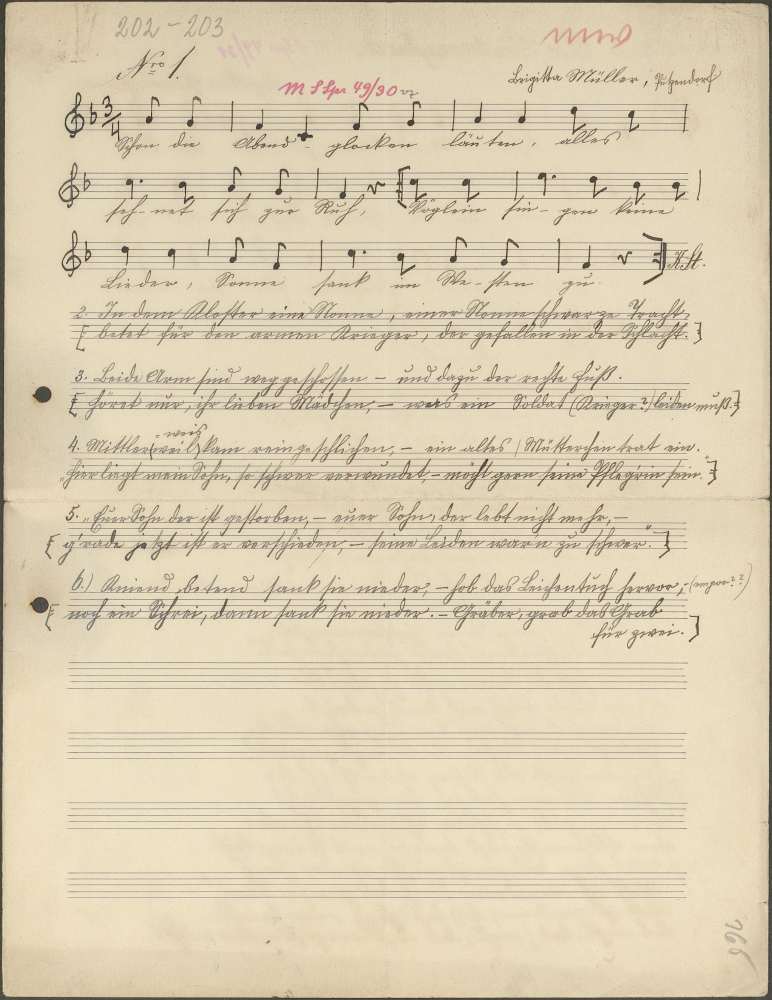 202-203
Nro 1.
Brigitta Müller, Putzendorf
49/30
Schon die Abend-glocken läuten, alles
seh-net sich zur Ruh, Vöglein sin-gen keine
Lieder, Sonne sank im We-sten zu.
2. In dem Kloster eine Nonne, einer Nonne schwarze Tracht,
[betet für den armen Krieger, der gefallen in der Schlacht.]
3. Beide Arm sind weggeschossen – und dazu der rechte Fuß.
[Höret nur, ihr lieben Mädchen, – was ein Soldat (Krieger?) leiden muß.]
-weis
4. Mittler(weil) kam reingeschlichen, – ein altes Mütterchen trat ein.
"Hier liegt mein Sohn, so schwer verwundet, – möcht gern seine Pfleg'rin sein."]
5. "Euer Sohn der ist gestorben, – euer Sohn, der lebt nicht mehr, –
[g'rade jetzt ist er verschieden, – seine Leiden warn zu schwer."]
6.) Kniend, betend sank sie nieder, – hob das Leichentuch hervor, – (empor??)
[noch ein Schrei, dann sank sie nieder. – Gräber, grab das Grab
für zwei.]